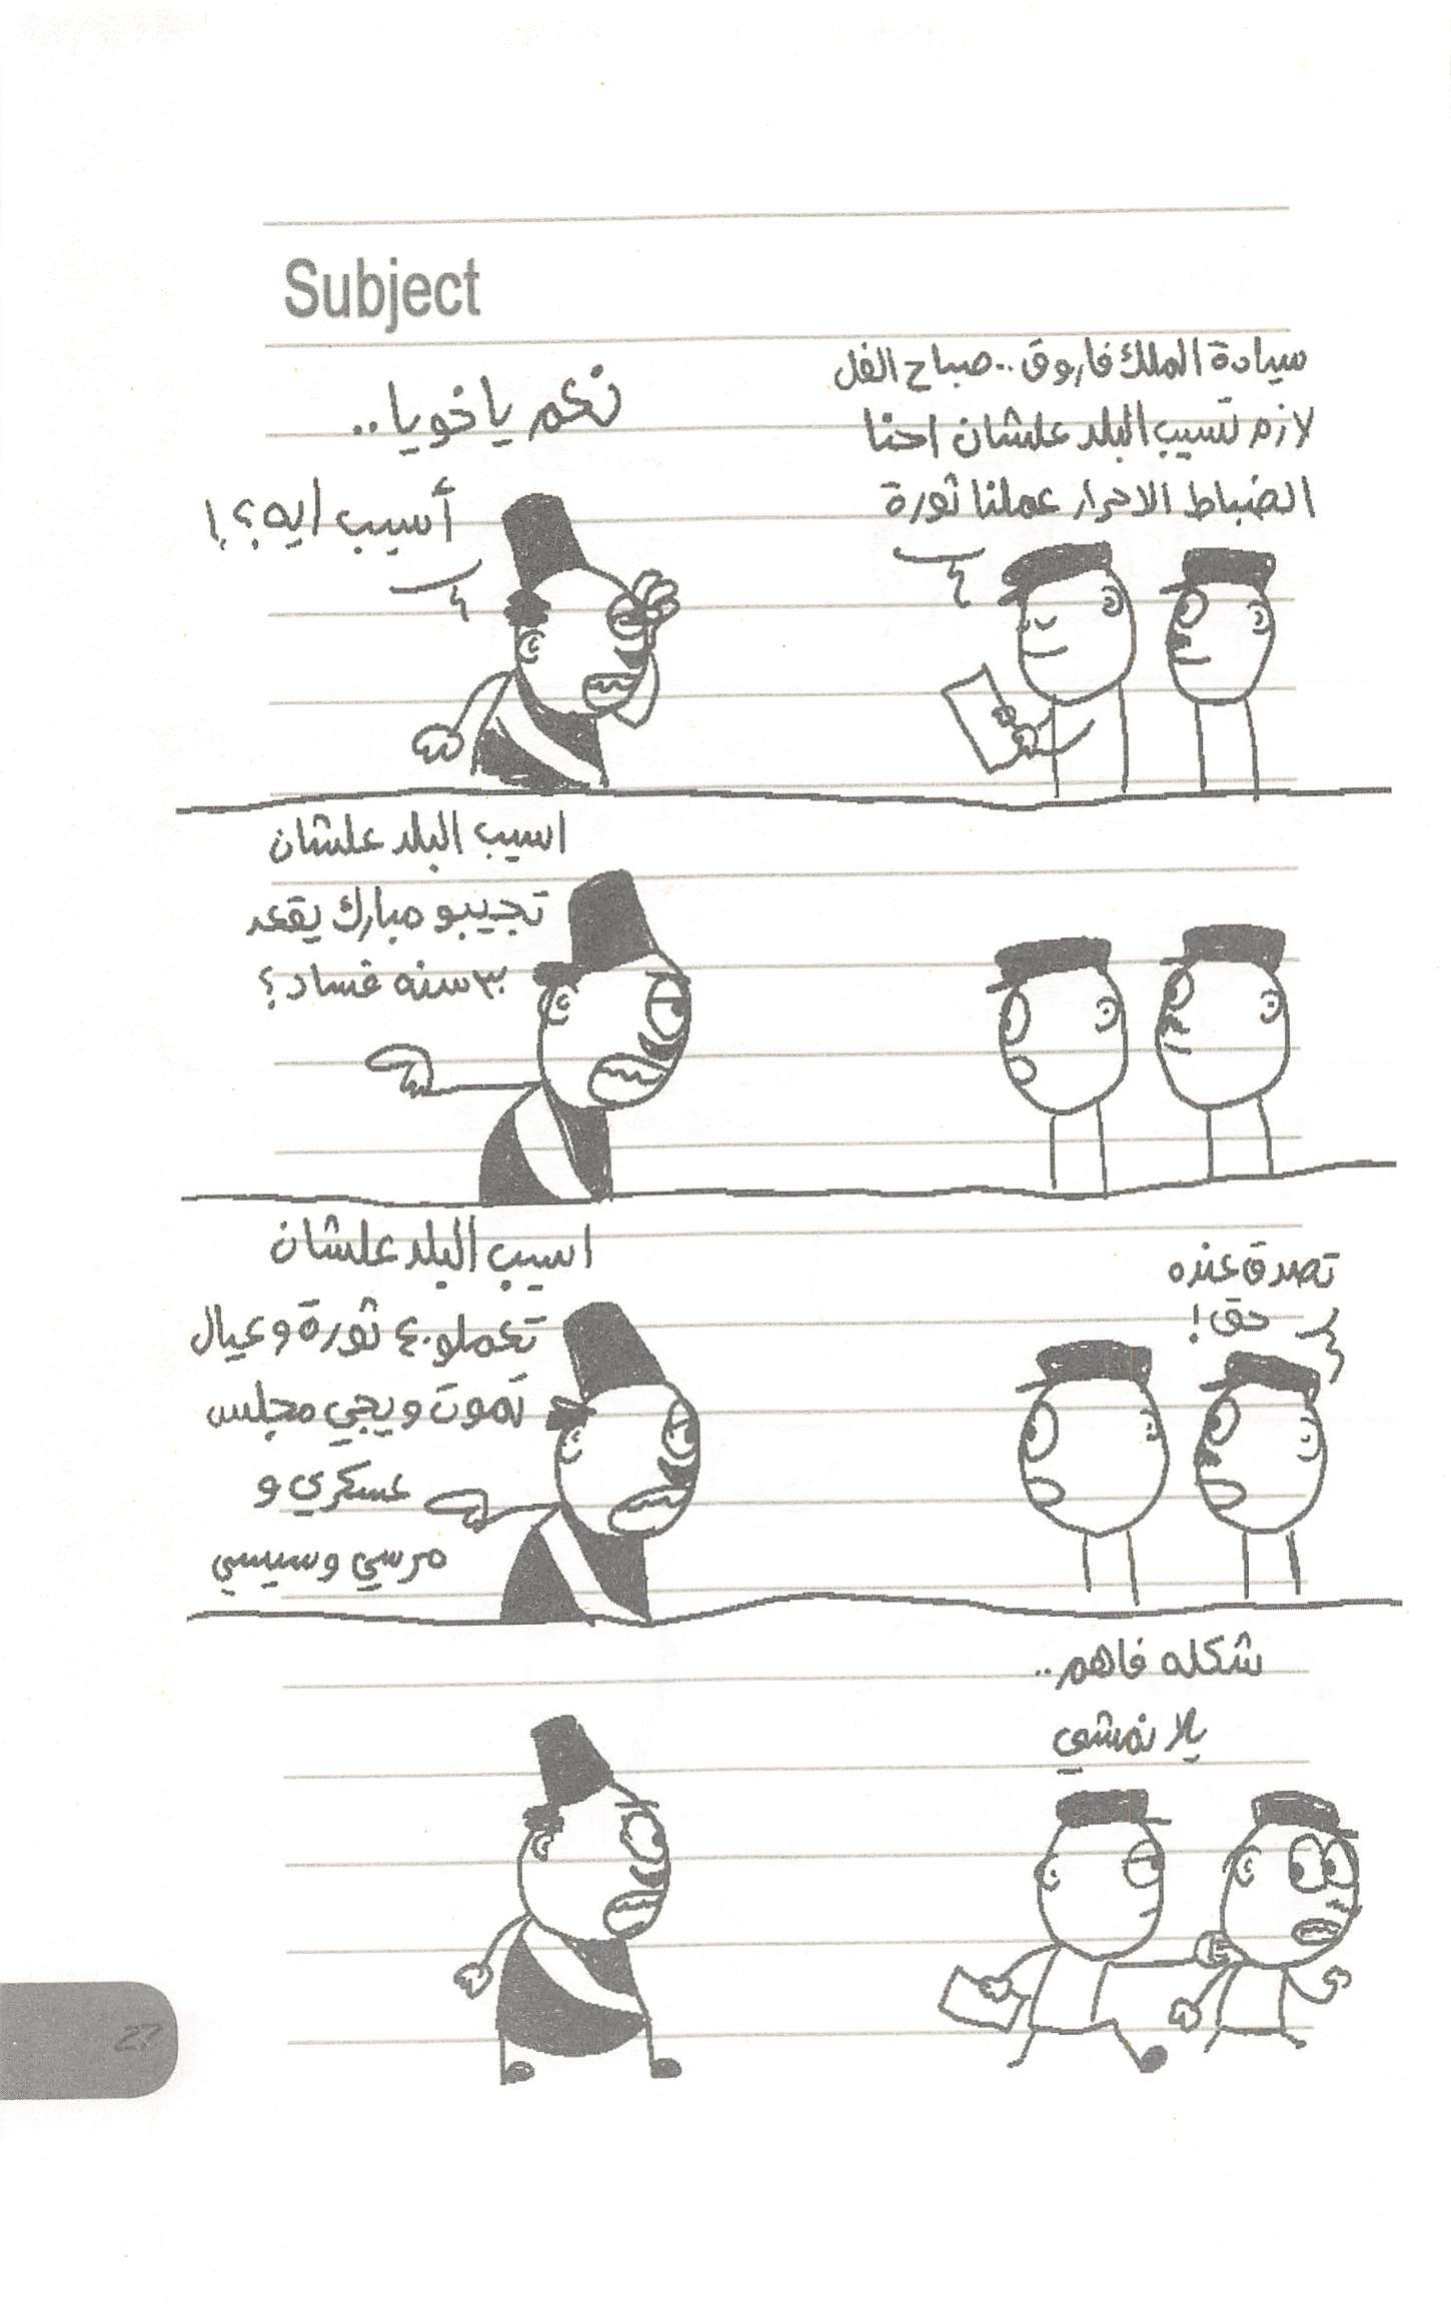 Subject
سيادة الملك فاروق .. صباح الفل
لازم تسيب البلد علشان احنا
الضباط الاحرار عملنا ثورة
نعم يا خويا ..
أسيب ايه؟!
اسيب البلد علشان
تجيبو مبارك يقعد
٣٠ سنه فساد؟
اسيب البلد علشان
تعملو ٤٠ ثورة وعيال
تموت ويجي مجلس
عسكري و
مرسي وسيسي
تصدق عنده
حق!
شكله فاهم ..
يلا نمشي
27